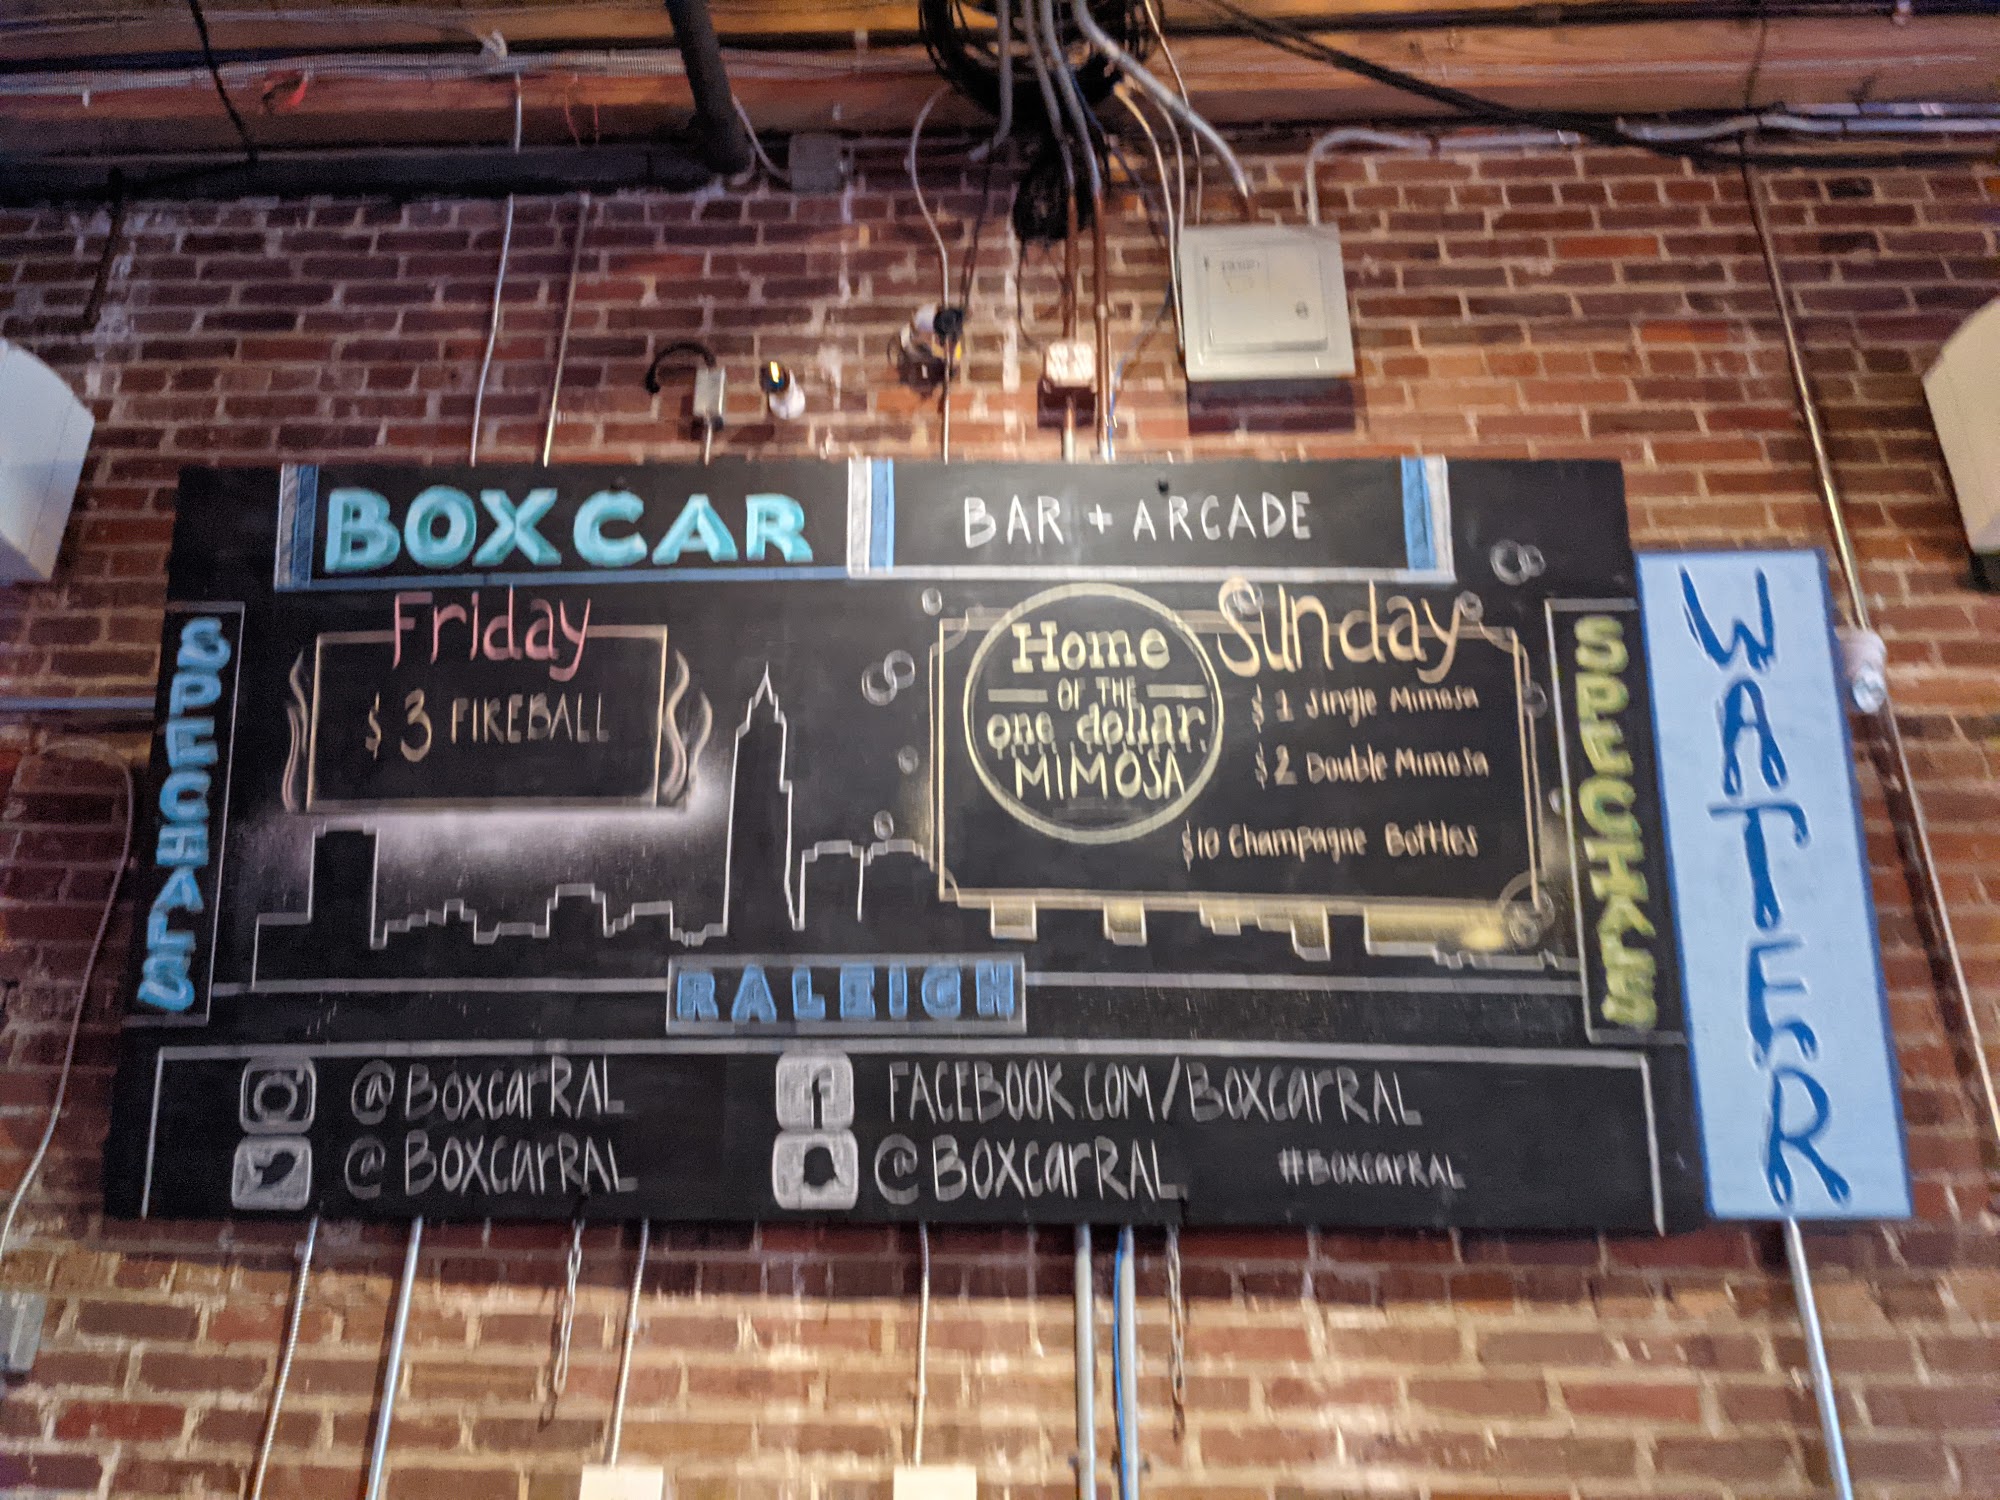 BOXCAR
BAR + ARCADE
SPECIALS
Friday
$3 FIREBALL
Home
OF THE
one dollar
MIMOSA
Sunday
$1 Single Mimosa
$2 Double Mimosa
$10 Champagne Bottles
SPECIALS
WATER
RALEIGH
@BOXCARRAL
FACEBOOK.COM/BOXCARRAL
@BOXCARRAL
@BOXCARRAL
#BOXCARRAL